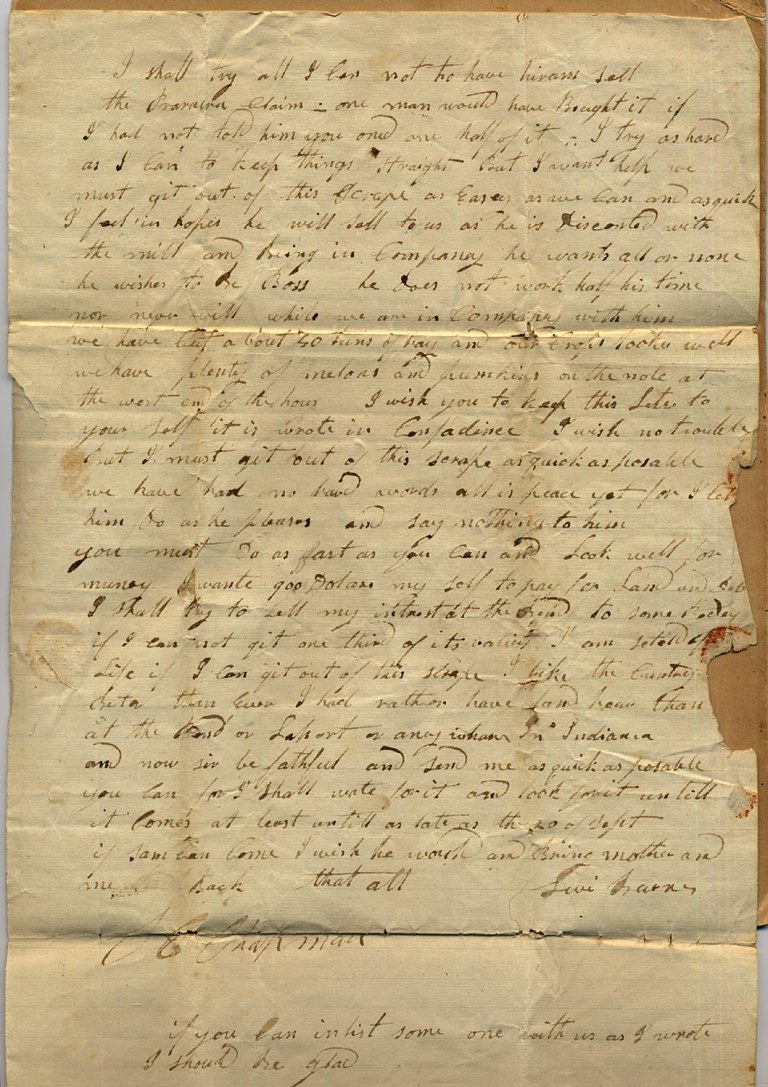 I shall try all I Can not to have hiram sell
the Prararva Claim - one man would have Bought it if
I had not told him you ond one half of it - I try as hard
as I Can to keep things straight but I want help we
must git out of this scrape as Easey as we Can and as quick
I feel in hopes he will sell to us as he is Disconted with
the mill and being in Companey he wants all or none
he wishes to be Boss he does not work half his time
nor never will while we are in Companey with him
we have cut about 40 tuns of hay and our Crops looke well
we have plenty of melons and pumkins on the nole at
the west end of the hous I wish you to keep this Lete to
your self it is wrote in Confadince I wish no trouble
but I must git out of this scrape as quick as posable
we have had no hard words all is peace yet for I let
him do as he pleases and say nothing to him
you must Do as fast as you Can and Look well for
muney I wante 900 Dolars my self to pay for Land and
I shall try to sell my intrest at the Bend to some Bodey
if I can not git one third of its valley I am seteld for
Life if I Can git out of this scrape I like the Cuntrey
Beter then Ever I had rather have land hear than
at the Bend or Laport or aney whare In Indiana
and now sir be fathful and send me as quick as posable
you Can for I shall wate for it and look for it untill
it Comes at least untill as late as the 20 of Sept
if Sam Can Come I wish he would and Bring mother and
me Back that all Levi Barnes
H C Chapman
if you Can inlist some one with us as I wrote
I should be glad